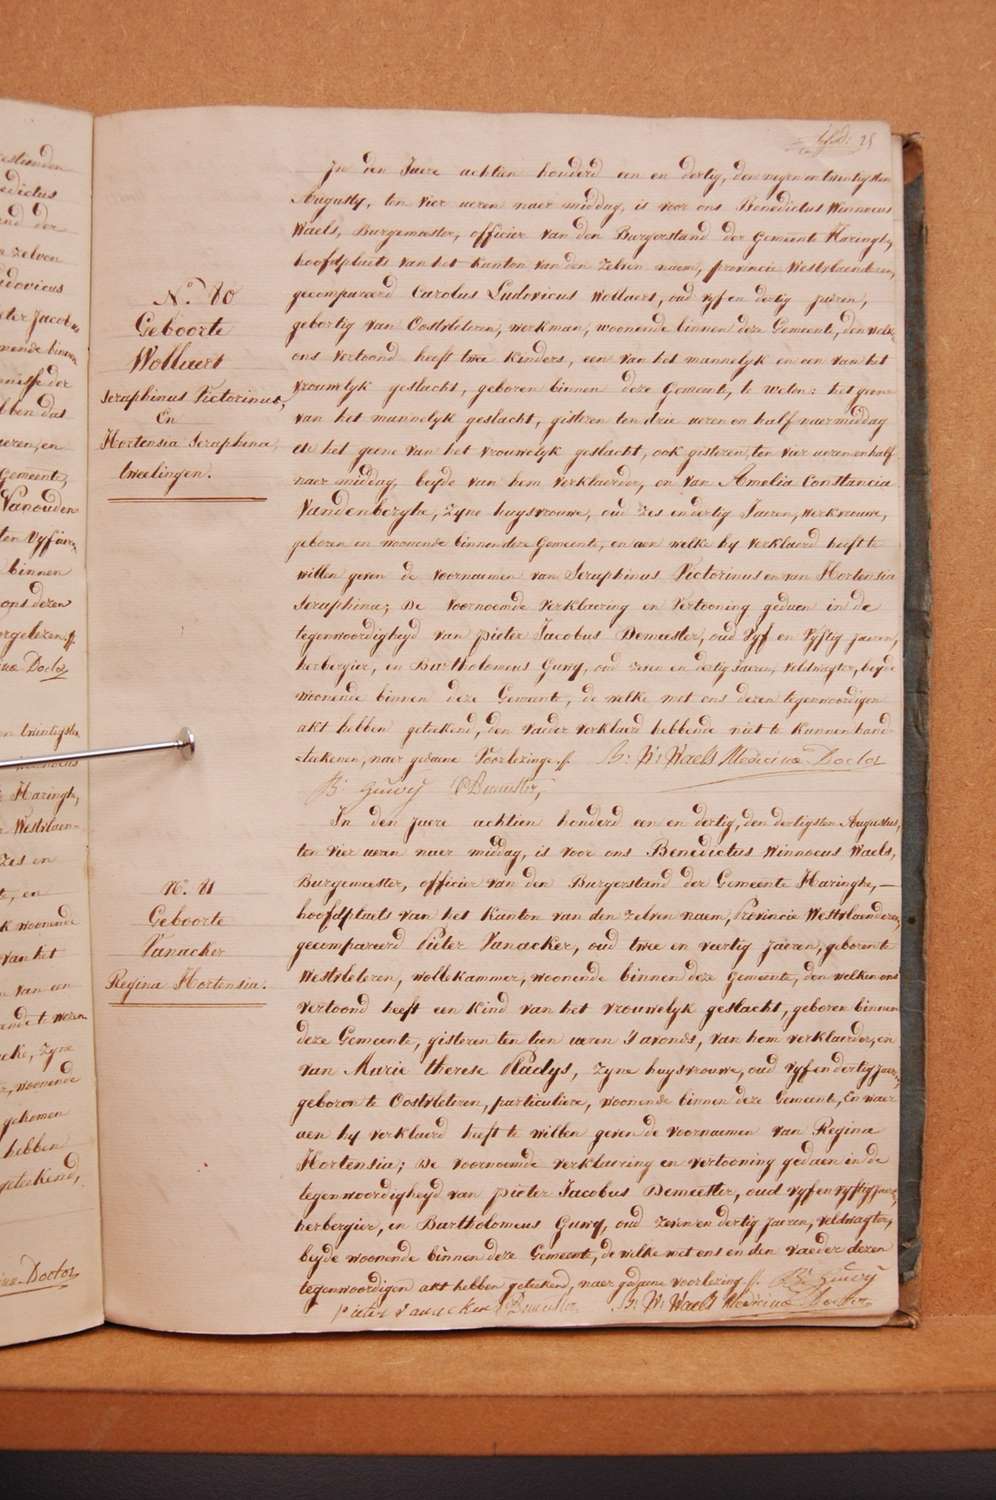 25
N.° 80
Geboorte
Wollaert
Seraphinus Victorinus,
En
Hortensia Seraphina,
tweelingen.
In den Jaere achtien honderd een en dertig, den negen en twentigsten
Augusty, ten vier ueren naer middag, is voor ons Benedictus Winnocus
Waels, Burgemeester, officier van den Burgerstand der Gemeente Haringhe,
hoofdplaets van het Kanton van den zelven naem, provincie Westvlaenderen,
gecompareerd Carolus Ludovicus Wollaert, oud vyf en dertig jaeren,
gebortig van Oostvleteren, werkman, woonende binnen deze Gemeente, den welk
ons vertoond heeft twee kinders, een van het mannelyk en een van het
vrouwelyk geslacht, geboren binnen deze Gemeente, te weten: het gene
van het mannelyk geslacht, gisteren ten drie ueren en half naermiddag
en het geene van het vrouwelyk geslacht, ook gisteren, ten vier ueren en half
naer middag, beyde van hem verklaerder, en van Amelia Constancia
Vandenberghe, zyne huysvrouwe, oud zes en dertig Jaeren, werkvrouwe,
geboren en woonende binnen deze Gemeente, en aen welke hy verklaerd heeft te
willen geven de voornaemen van Seraphinus Victorinus en van Hortensia
Seraphina; De voornoemde verklaering en vertooning gedaen in de
tegenwoordigheyd van pieter Jacobus Demeester, oud vyf en vyftig jaeren,
herbergier, en Bartholomeus Guwy, oud zeven en dertig Jaeren, veldwagter, beyde
woonende binnen deze Gemeente, de welke met ons dezen tegenwoordigen
akt hebben geteekend, den vader verklaerd hebbende niet te kunnen hand-
teekenen, naer gedaene Voorlezinge. B: W: Waels Medicinæ Doctor
B: Guwy P Demeester,
N.° 81
Geboorte
Vanacker
Regina Hortensia.
In den jaere achtien honderd een en dertig, den dertigsten Augustus,
ten vier ueren naer middag, is voor ons Benedictus Winnocus Waels,
Burgemeester, officier van den Burgerstand der Gemeente Haringhe, —
hoofdplaets van het Kanton van den zelven naem, Provincie Westvlaenderen,
gecompareerd Pieter Vanacker, oud twee en veertig jaeren, geboren te
Westvleteren, wollekammer, woonende binnen deze gemeente, den welken ons
vertoond heeft een kind van het vrouwelyk geslacht, geboren binnen
deze Gemeente, gisteren ten tien ueren s'avonds, van hem verklaerder, en
van Marie therese Pladys, zyne huysvrouwe, oud vyf en dertig jaeren,
geboren te Oostvleteren, particuliere, woonende binnen deze Gemeente, En waer
aen hy verklaerd heeft te willen geven de voornaemen van Regina
Hortensia; De voornoemde verklaering en vertooning gedaen in de
tegenwoordigheyd van pieter Jacobus Demeester, oud vyf en vyftig jaeren,
herbergier, en Bartholomeus Guwy, oud zeven en dertig jaeren, veldwagter,
beyde woonende binnen deze Gemeente, de welke met ons en den vaeder dezen
tegenwoordigen akt hebben geteekend, naer gedaene voorlezing. B: Guwy
pieter vanacker P Demeester B: W: Waels Medicinæ Doctor